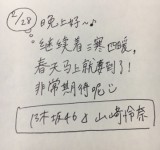 2/28
晚上好~♪
继续着三寒四暖,
春天马上就要到了!
非常期待呢☺
乃木坂46の山崎怜奈